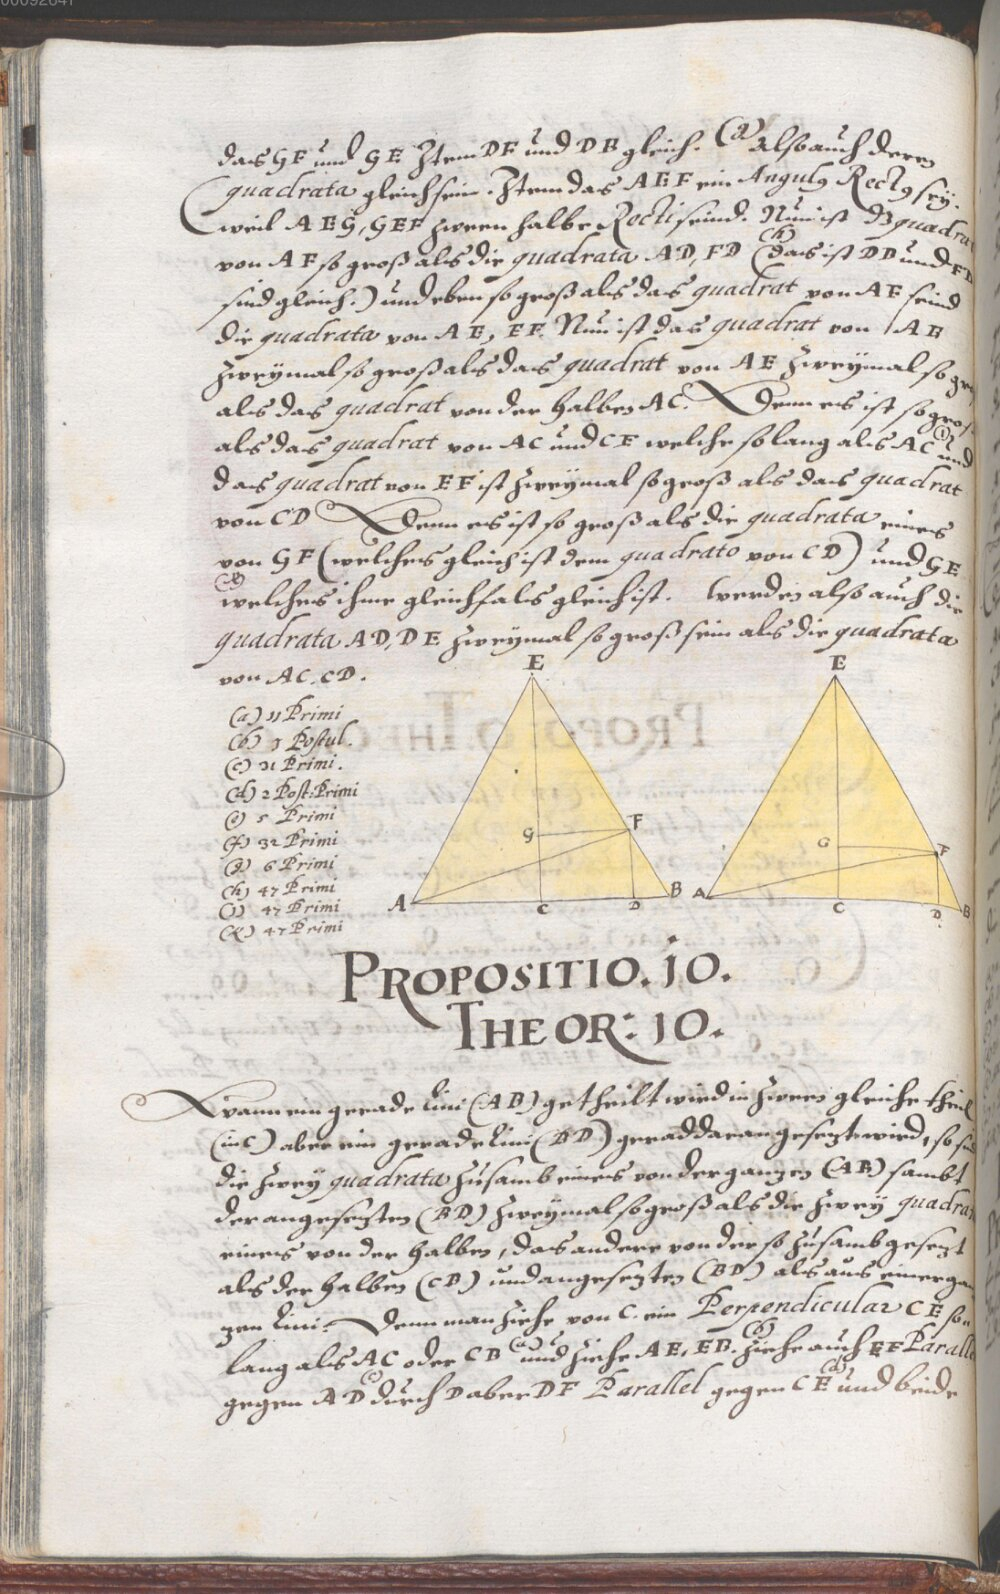 das GF und GE Item DF und DB gleich. (g) Also auch deren
quadrata gleich sein. Item das AEF ein Angulg Rectg seÿ.
weil AEG, GEF zween halbe Recti seind. Nun ist dz quadra
von AF so groß als die quadrata AD, FD (h) (das ist DB und FD
sind gleich.) und eben so groß als das quadrat von AF seind
die quadrata von AE, EF. Nun ist das quadrat von AE
zweÿmal so groß als das quadrat von AE zweÿmal so gro
als das quadrat von der halben AC. Denn es ist so groß
als das quadrat von AC und CE welche so lang als AC (i) und
das quadrat von EF ist zweÿmal so groß als das quadrat
von CD Denn es ist so groß als die quadrata eines
von GF (welches gleich ist dem quadrato von CD) und GE
(k) welches ihme gleichfals gleich ist. Werden also auch die
quadrata AD, DE zweÿmal so groß sein als die quadrata
von AC, CD.
(a) 11 Primi
(b) 3 Postul.
(c) 31 Primi.
(d) 2 Post: Primi
(e) 5 Primi
(f) 32 Primi
(g) 6 Primi
(h) 47 Primi
(i) 47 Primi
(k) 47 Primi
E
G
F
A
C
D
B
E
G
F
A
C
D
B
PROPOSITIO. 10.
THEOR: 10.
Wann ein gerade Lini (AB) getheilt wird in zween gleiche theil
(in C) aber ein gerade Lini (BD) gerad daran gesezt wird, so sin
die zweÿ quadrata zusamb eines von der ganzen (AB) sambt
der angesezten (BD) zweÿmal so groß als die zweÿ quadrat
eines von der halben, das andere von der so zusamb gesezt
als der halben (CB) und angesezten (BD) als aus einer ga
zen Lini. Denn man ziehe von C. ein Perpendicular CE so
lang als AC oder CB (a) und ziehe AE, EB. (b) ziehe auch EF Paralle
gegen AD (c) durch D aber DF Parallel gegen CE (d) und beide